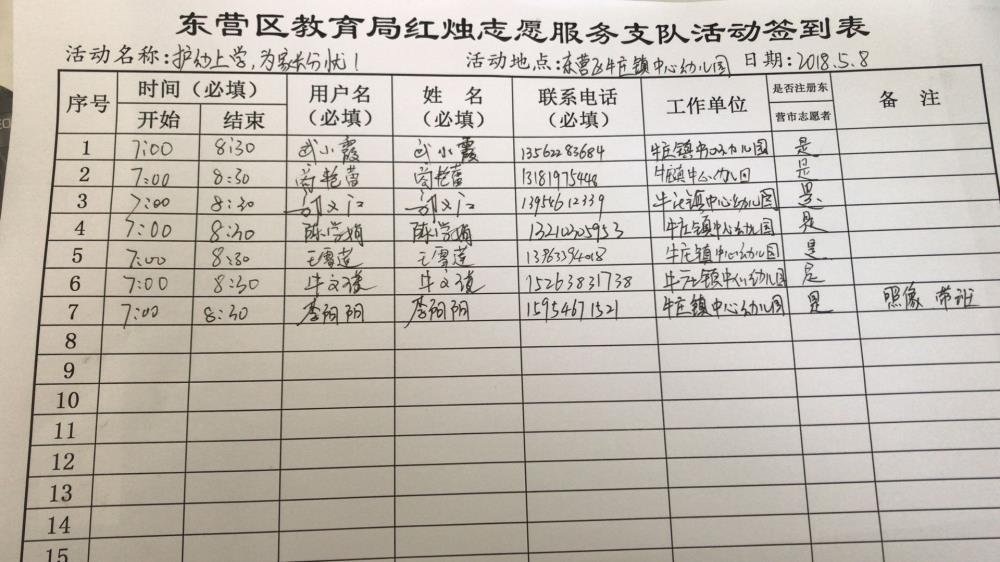 东营区教育局红烛志愿服务支队活动签到表
活动名称：护幼上学，为家长分忧！ 活动地点：东营区牛庄镇中心幼儿园 日期：2018.5.8
序号 时间（必填） 用户名（必填） 姓 名（必填） 联系电话（必填） 工作单位 是否注册东营市志愿者 备 注
开始 结束
1 7:00 8:30 武小霞 武小霞 13562283684 牛庄镇中心幼儿园 是
2 7:00 8:30 13181975448 牛庄镇中心幼儿园 是
3 7:00 8:30 13954612339 牛庄镇中心幼儿园 是
4 7:00 8:30 牛庄镇中心幼儿园 是
5 7:00 8:30 王雪莲 王雪莲 牛庄镇中心幼儿园 是
6 7:00 8:30 15263831738 牛庄镇中心幼儿园 是
7 7:00 8:30 李阳阳 李阳阳 15954671521 牛庄镇中心幼儿园 是 照像 带班
8
9
10
11
12
13
14
15